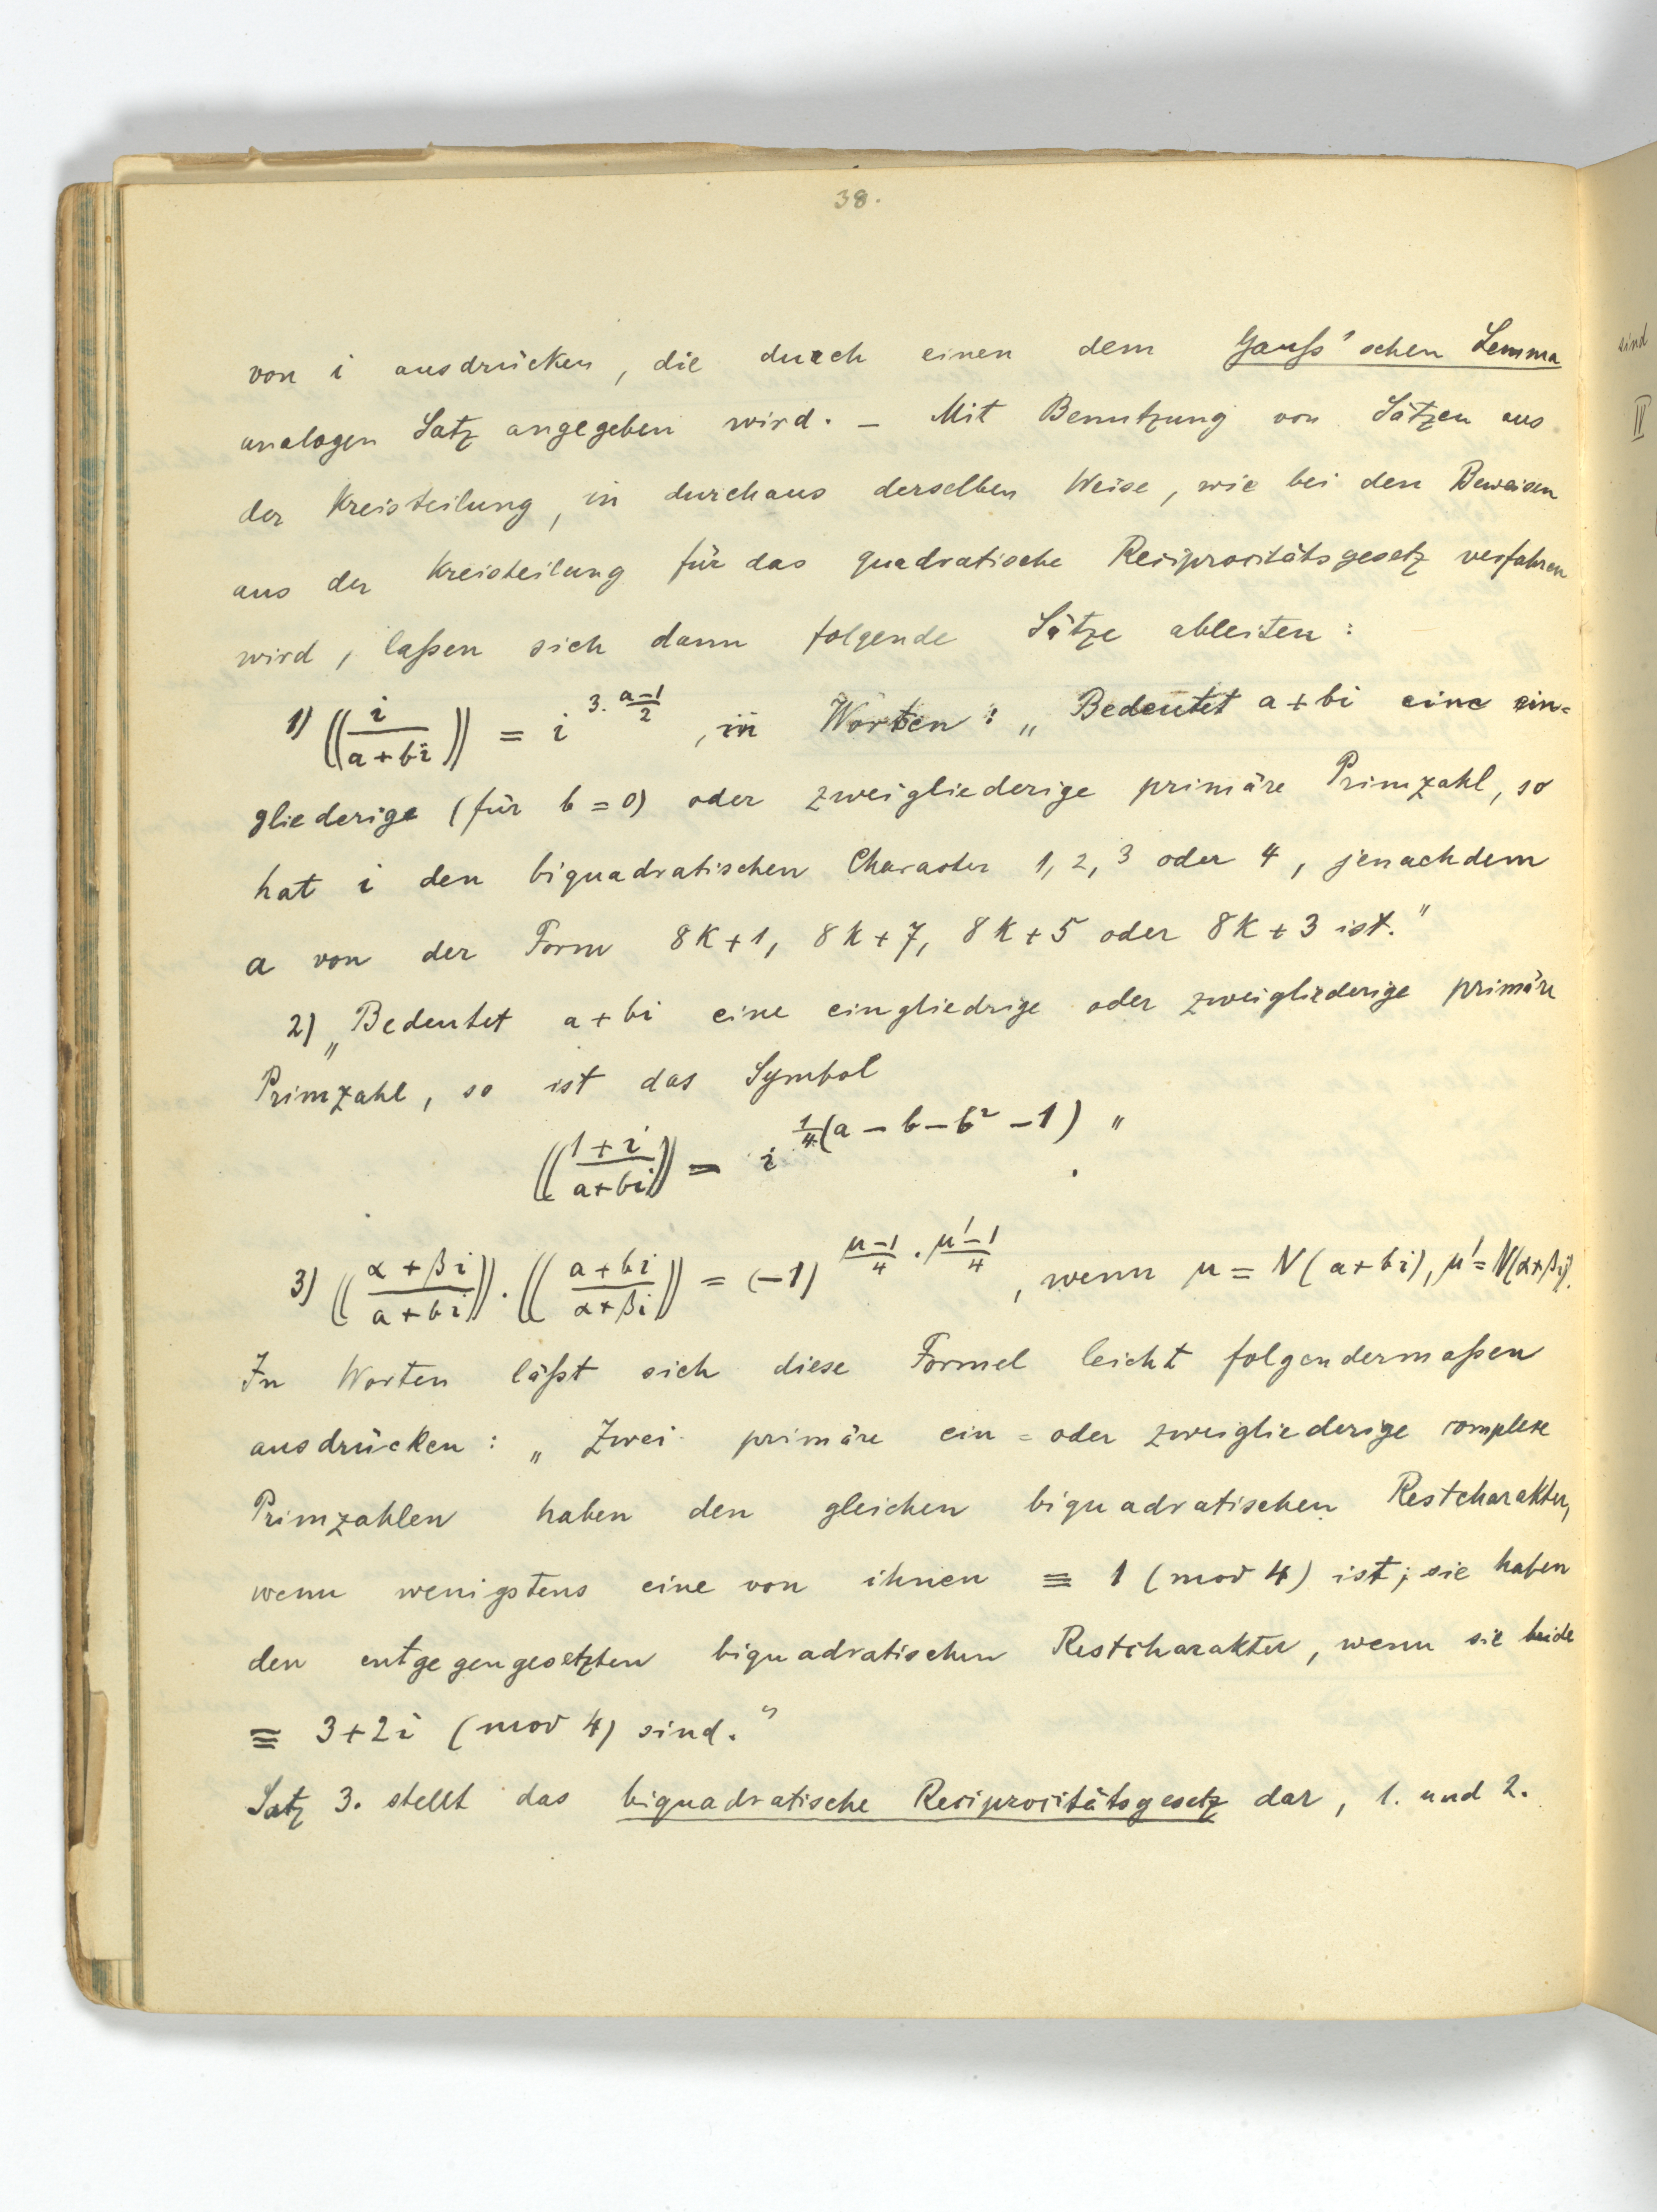 38.
von i ausdrücken, die durch einen dem Gauß'schen Lemma
analogen Satz angegeben wird. – Mit Benutzung von Sätzen aus
der Kreisteilung, in durchaus derselben Weise, wie bei den Beweisen
aus der Kreisteilung für das quadratische Reciprocitätsgesetz verfahren
wird, laßen sich dann folgende Sätze ableiten:
1) ((i/(a+bi))) = i^(3·(a-1)/2), in Worten: „Bedeutet a+bi eine ein=
gliederige (für b=0) oder zweigliederige primäre Primzahl, so
hat i den biquadratischen Character 1, 2, 3 oder 4, jenachdem
a von der Form 8k+1, 8k+7, 8k+5 oder 8k+3 ist."
2) „Bedeutet a+bi eine eingliedrige oder zweigliederige primäre
Primzahl, so ist das Symbol
(((1+i)/(a+bi))) = i^(1/4(a-b-b²-1))".
3) (((α+βi)/(a+bi)))·(((a+bi)/(α+βi))) = (-1)^((μ-1)/4·(μ'-1)/4), wenn μ=N(a+bi), μ'=N(α+βi).
In Worten läßt sich diese Formel leicht folgendermaßen
ausdrücken: „Zwei primäre ein= oder zweigliederige complexe
Primzahlen haben den gleichen biquadratischen Restcharakter,
wenn wenigstens eine von ihnen ≡ 1 (mod 4) ist; sie haben
den entgegengesetzten biquadratischen Restcharakter, wenn sie beide
≡ 3+2i (mod 4) sind."
Satz 3. stellt das biquadratische Reciprocitätsgesetz dar, 1. und 2.
sind
II